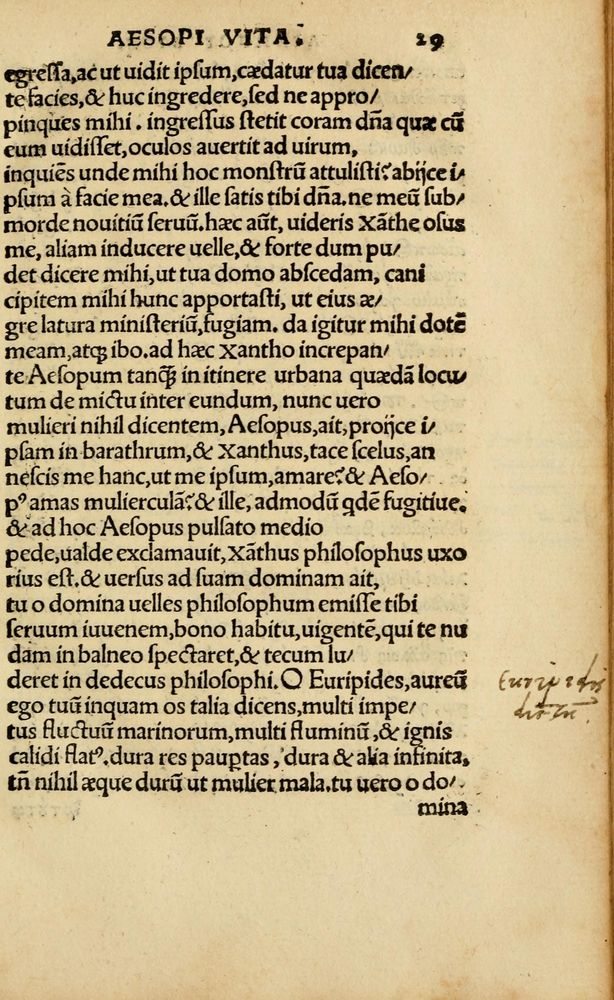 AESOPI VITA. 29
egressa, ac ut uidit ipsum, cædatur tua dicen/
te facies, & huc ingredere, sed ne appro/
pinques mihi. ingressus stetit coram dña quæ cũ
eum uidisset, oculos auertit ad uirum,
inquiẽs unde mihi hoc monstrũ attulisti? abijce i/
psum à facie mea. & ille satis tibi dña. ne meũ sub/
morde nouitiũ seruũ. hæc aũt, uideris Xãthe osus
me, aliam inducere uelle, & forte dum pu/
det dicere mihi, ut tua domo abscedam, cani
cipitem mihi hunc apportasti, ut eius æ/
gre latura ministeriũ, fugiam. da igitur mihi dotẽ
meam, atq; ibo. ad hæc Xantho increpan/
te Aesopum tanq̃ in itinere urbana quædã locu/
tum de mictu inter eundum, nunc uero
mulieri nihil dicentem, Aesopus, ait, proijce i/
psam in barathrum, & Xanthus, tace scelus, an
nescis me hanc, ut me ipsum, amare? & Aeso/
pꝰ amas mulierculã? & ille, admodũ qdẽ fugitiue.
& ad hoc Aesopus pulsato medio
pede, ualde exclamauit, Xãthus philosophus uxo
rius est. & uersus ad suam dominam ait,
tu o domina uelles philosophum emisse tibi
seruum iuuenem, bono habitu, uigentẽ, qui te nu
dam in balneo spectaret, & tecum lu/
deret in dedecus philosophi. O Euripides, aureũ
ego tuũ inquam os talia dicens, multi impe/
tus fluctuũ marinorum, multi fluminũ, & ignis
calidi flatꝰ. dura res paup̱tas, dura & alia infinita,
tñ nihil æque durũ ut mulier mala. tu uero o do/
mina
Euripidis